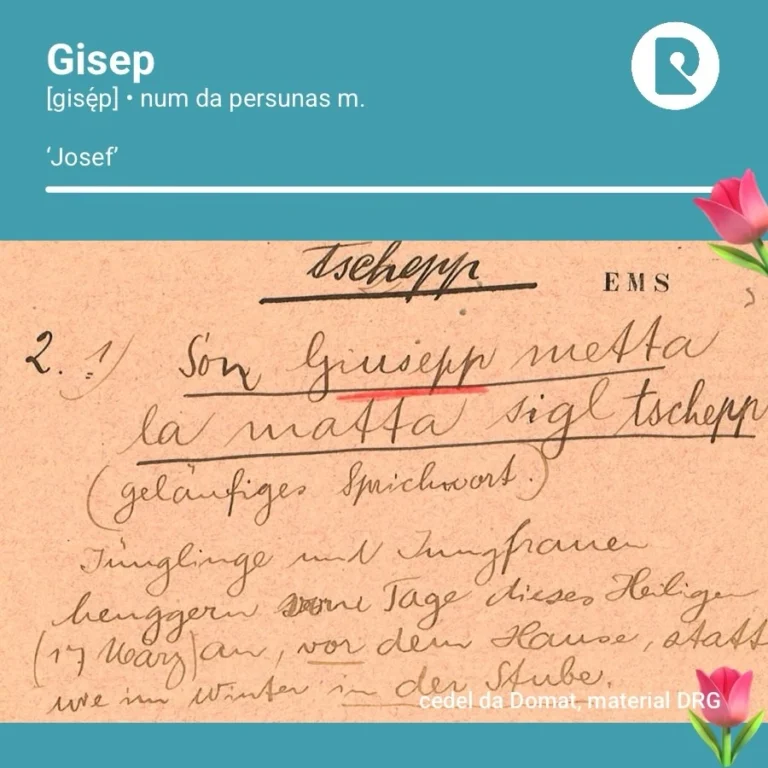 Gisep
[gisẹ́p] • num da persunas m.
‘Josef’
tschepp
EMS
2. 1) Son Giusepp metta
la matta sigl tschepp
(geläufiges Sprichwort.)
Jünglinge und Jungfrauen
henggern vom Tage dieses Heiligen
(19 März) an, vor dem Hause, statt
wie im Winter in der Stube.
cedel da Domat, material DRG